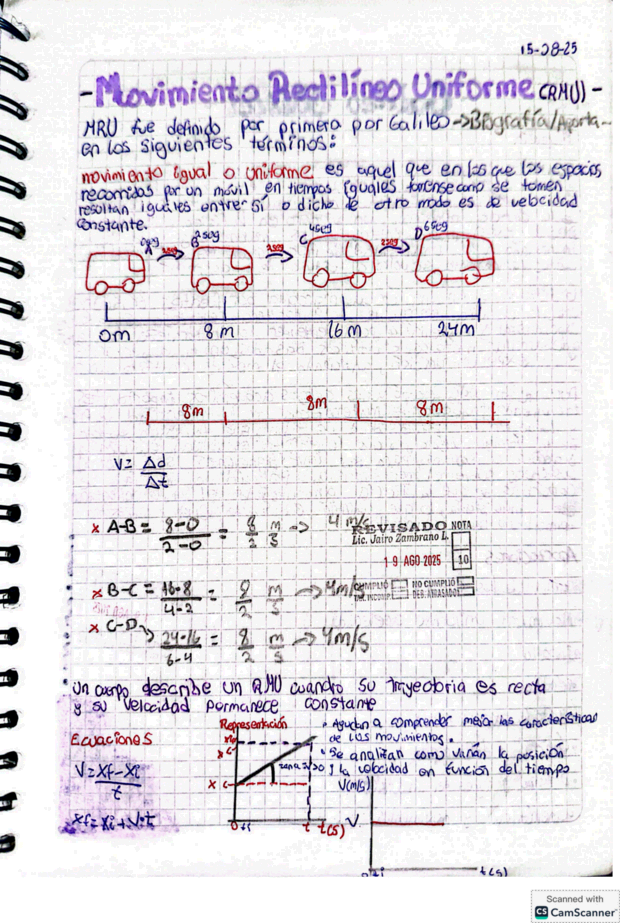 15-08-25
- Movimiento Rectilíneo Uniforme (RMU) -
MRU fue definido por primera por Galileo → Biografía/Aporta...
en los siguientes términos:
movimiento igual o uniforme es aquel que en los que los espacios
recorridos por un móvil en tiempos iguales tomense como se tomen
resultan iguales entre sí o dicho de otro modo es de velocidad
constante.
0seg 2seg 4seg 6seg
A 2seg B 2seg C 2seg D
0m 8m 16m 24m
8m 8m 8m
V= Δd
Δt
x A-B = 8-0 = 8 m → 4 m/s
2-0 2 s
REVISADO NOTA
Lic. Jairo Zambrano L.
19 AGO 2025 10
CUMPLIÓ NO CUMPLIÓ
x B-C = 16-8 = 8 m → 4m/s
4-2 2 s
x C-D → 24-16 = 8 m → 4m/s
6-4 2 s
Un cuerpo describe un RMU cuando su trayectoria es recta
y su velocidad permanece constante
Ecuaciones
V = Xf - Xi
t
Xf = Xi + V·t
Representación
t t(s)
• Ayudan a comprender mejor las características
de los movimientos.
• Se analizan como varían la posición
y la velocidad en función del tiempo
V(m/s)
V
t(s)
Scanned with
CS CamScanner